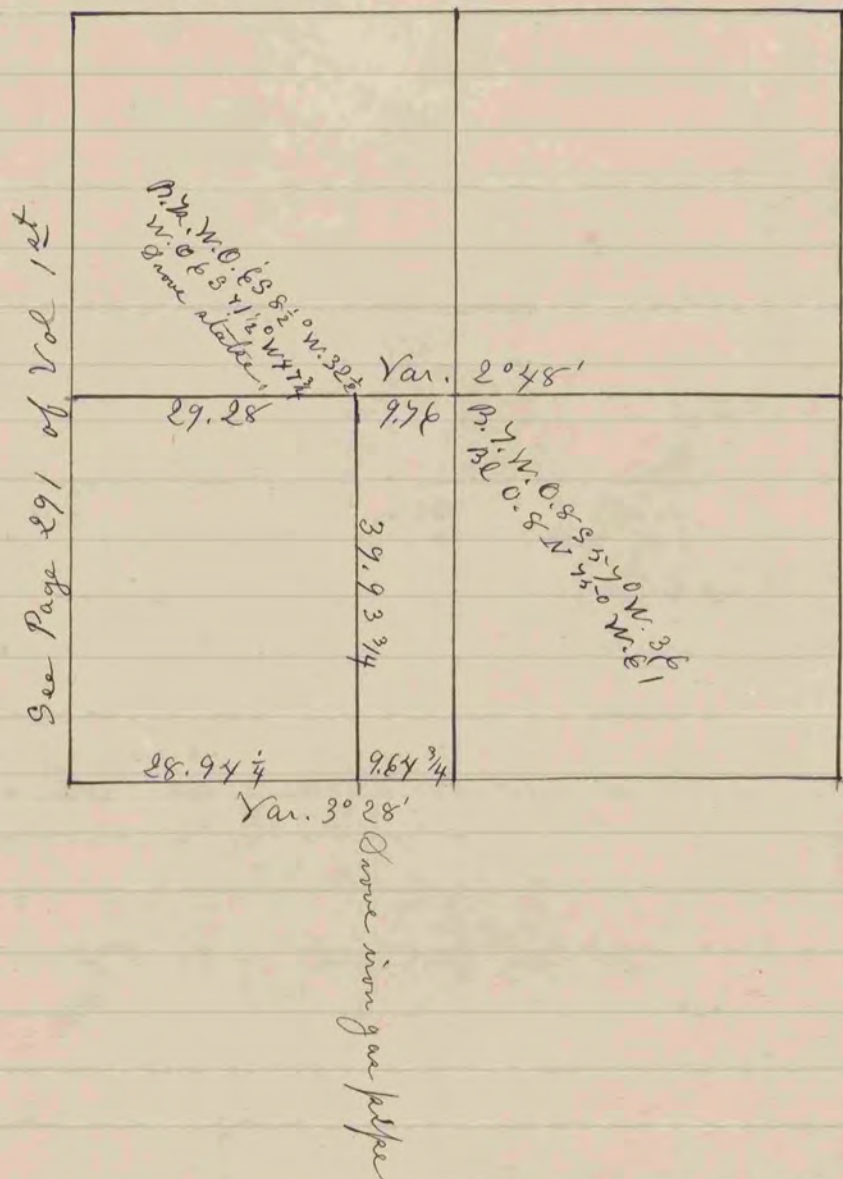 See Page 291 of Vol 1st
W. O. 6 S 8½° W. 32½
W. O 6 S 71½° W 47¾
Drove stake,
Var. 2° 48'
29.28
9.76
B. Y. W. O. 8 S 57° W. 36
Bl O. 8 N 75° W. 61
39.93 ¾
28.94 ¼
9.64 ¾
Var. 3° 28'
Drove iron gas pipe